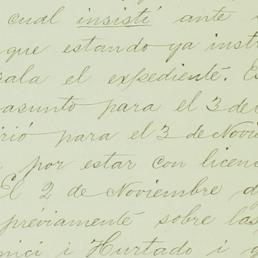 cual insistí ante
que estando ya instr
sala el expediente. Es
asunto para el 3 de
rió para el 3 de Novie
por estar con licenc
El 2 de Noviembre d
préviamente sobre las
nici i Hurtado i q